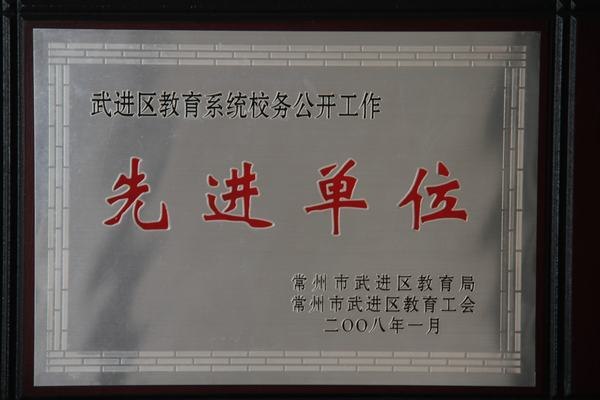 武进区教育系统校务公开工作
先进单位
常州市武进区教育局
常州市武进区教育工会
二〇〇八年一月